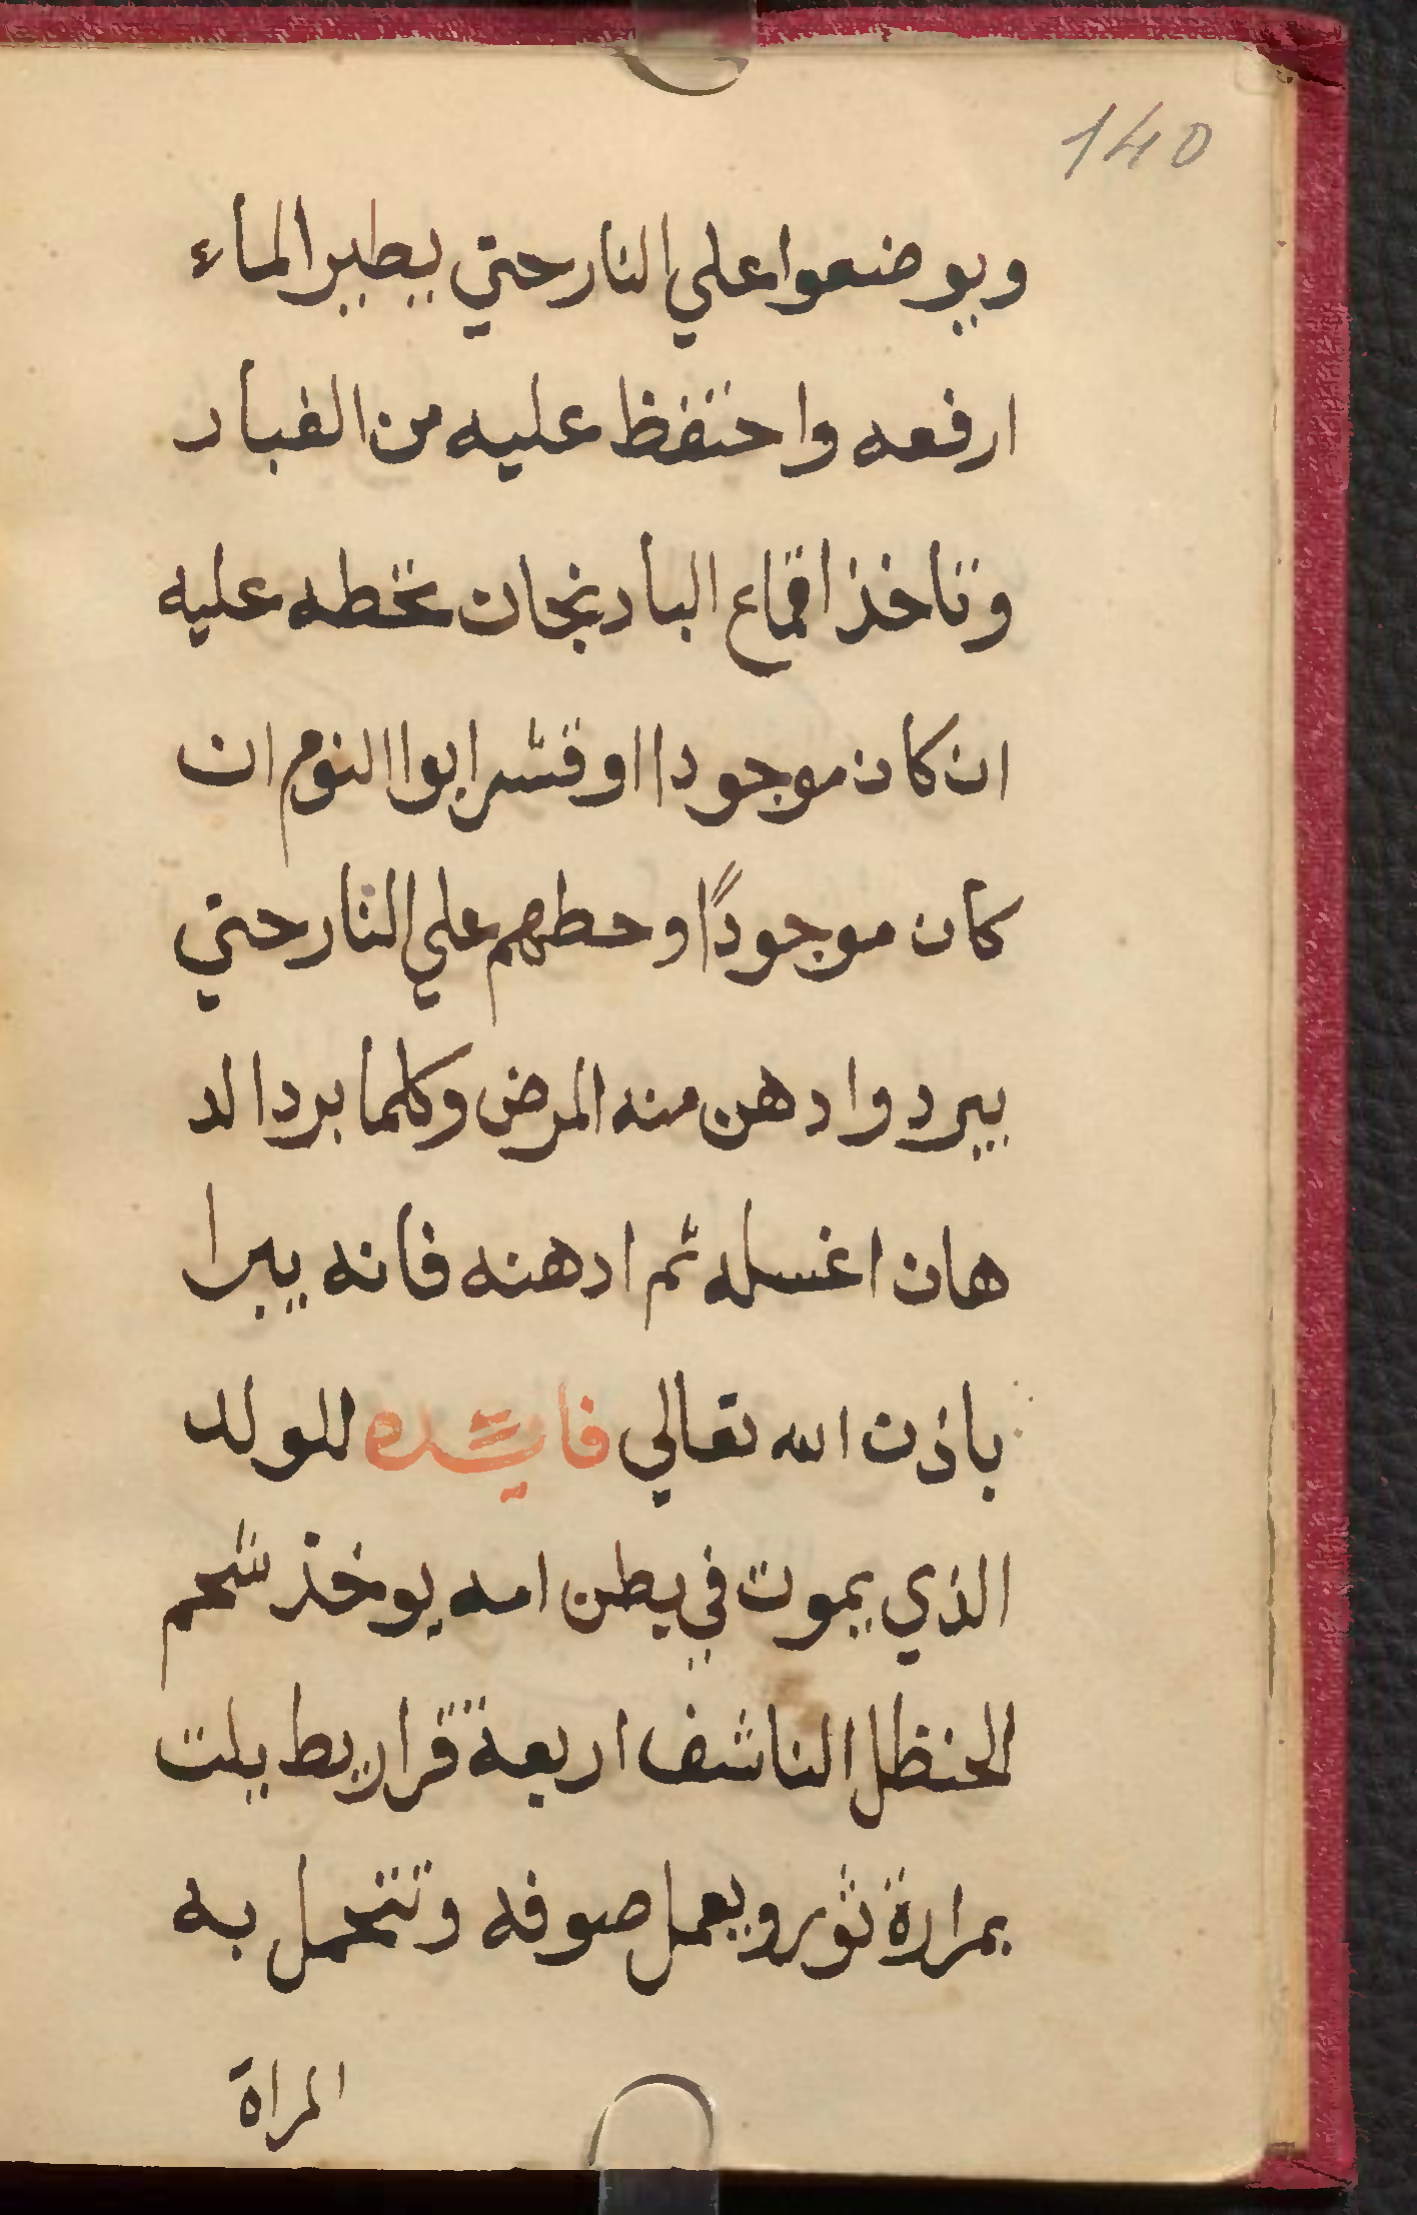 140
ويوضعوا علي النار حتي يطير الماء
ارفعه واحتفظ عليه من الغبار
وتاخذ اقماع البادنجان تحطه عليه
ان كان موجودا او قشر ابوا النوم ان
كان موجودًا وحطهم علي النار حتي
يبرد وادهن منه المرض وكلما برد الد
هان اغسله ثم ادهنه فانه يبرا
باذن الله تعالي فايده للولد
الذي يموت في بطن امه يوخذ شحم
الحنظل الناشف اربعة قراريط يلت
بمرارة ثور ويعمل صوفه وتتحمل به
المراة